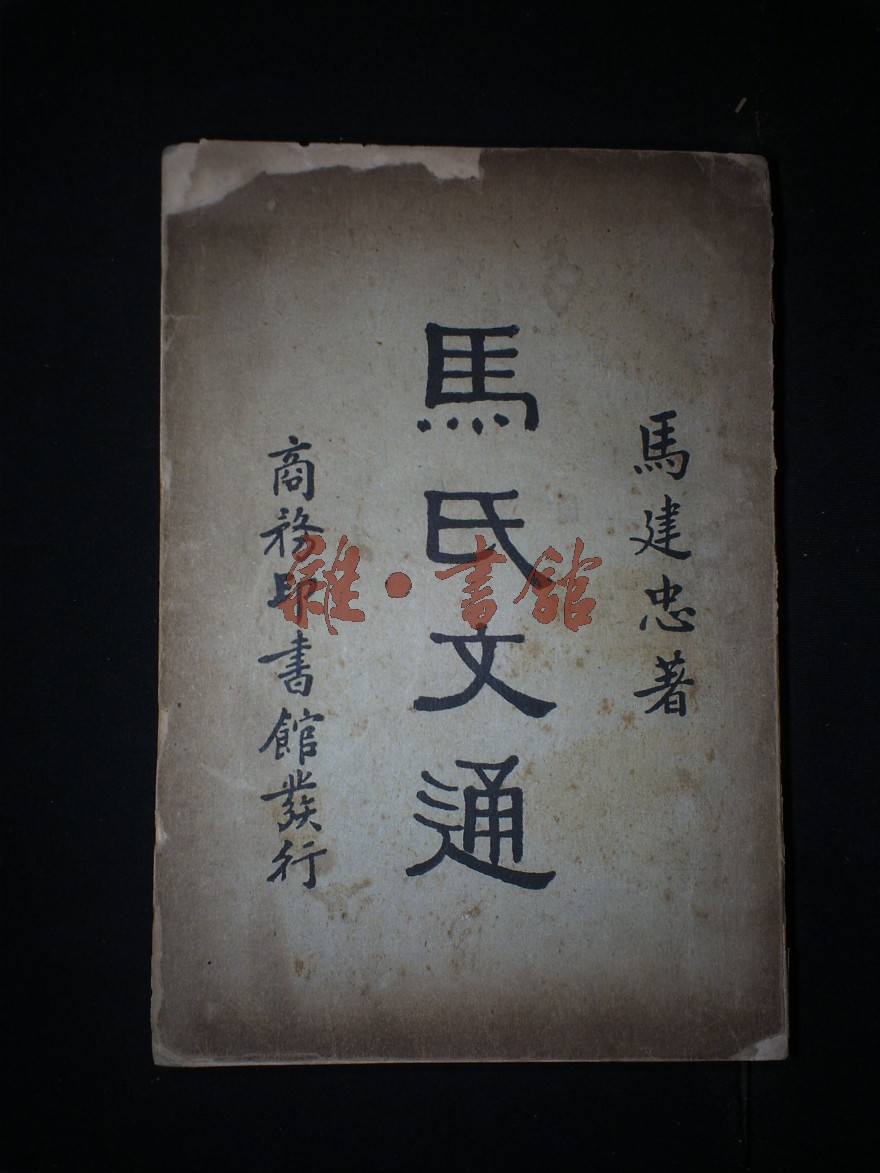 馬建忠著
馬氏文通
商務印書館發行
雜·書館